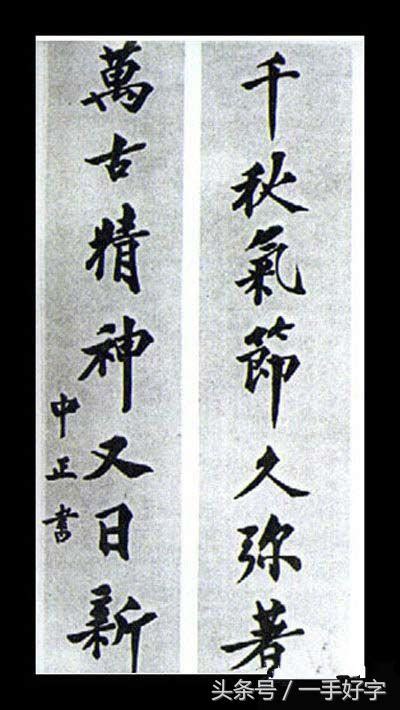 千秋氣節久弥著
萬古精神又日新
中正書
头条号／一手好字